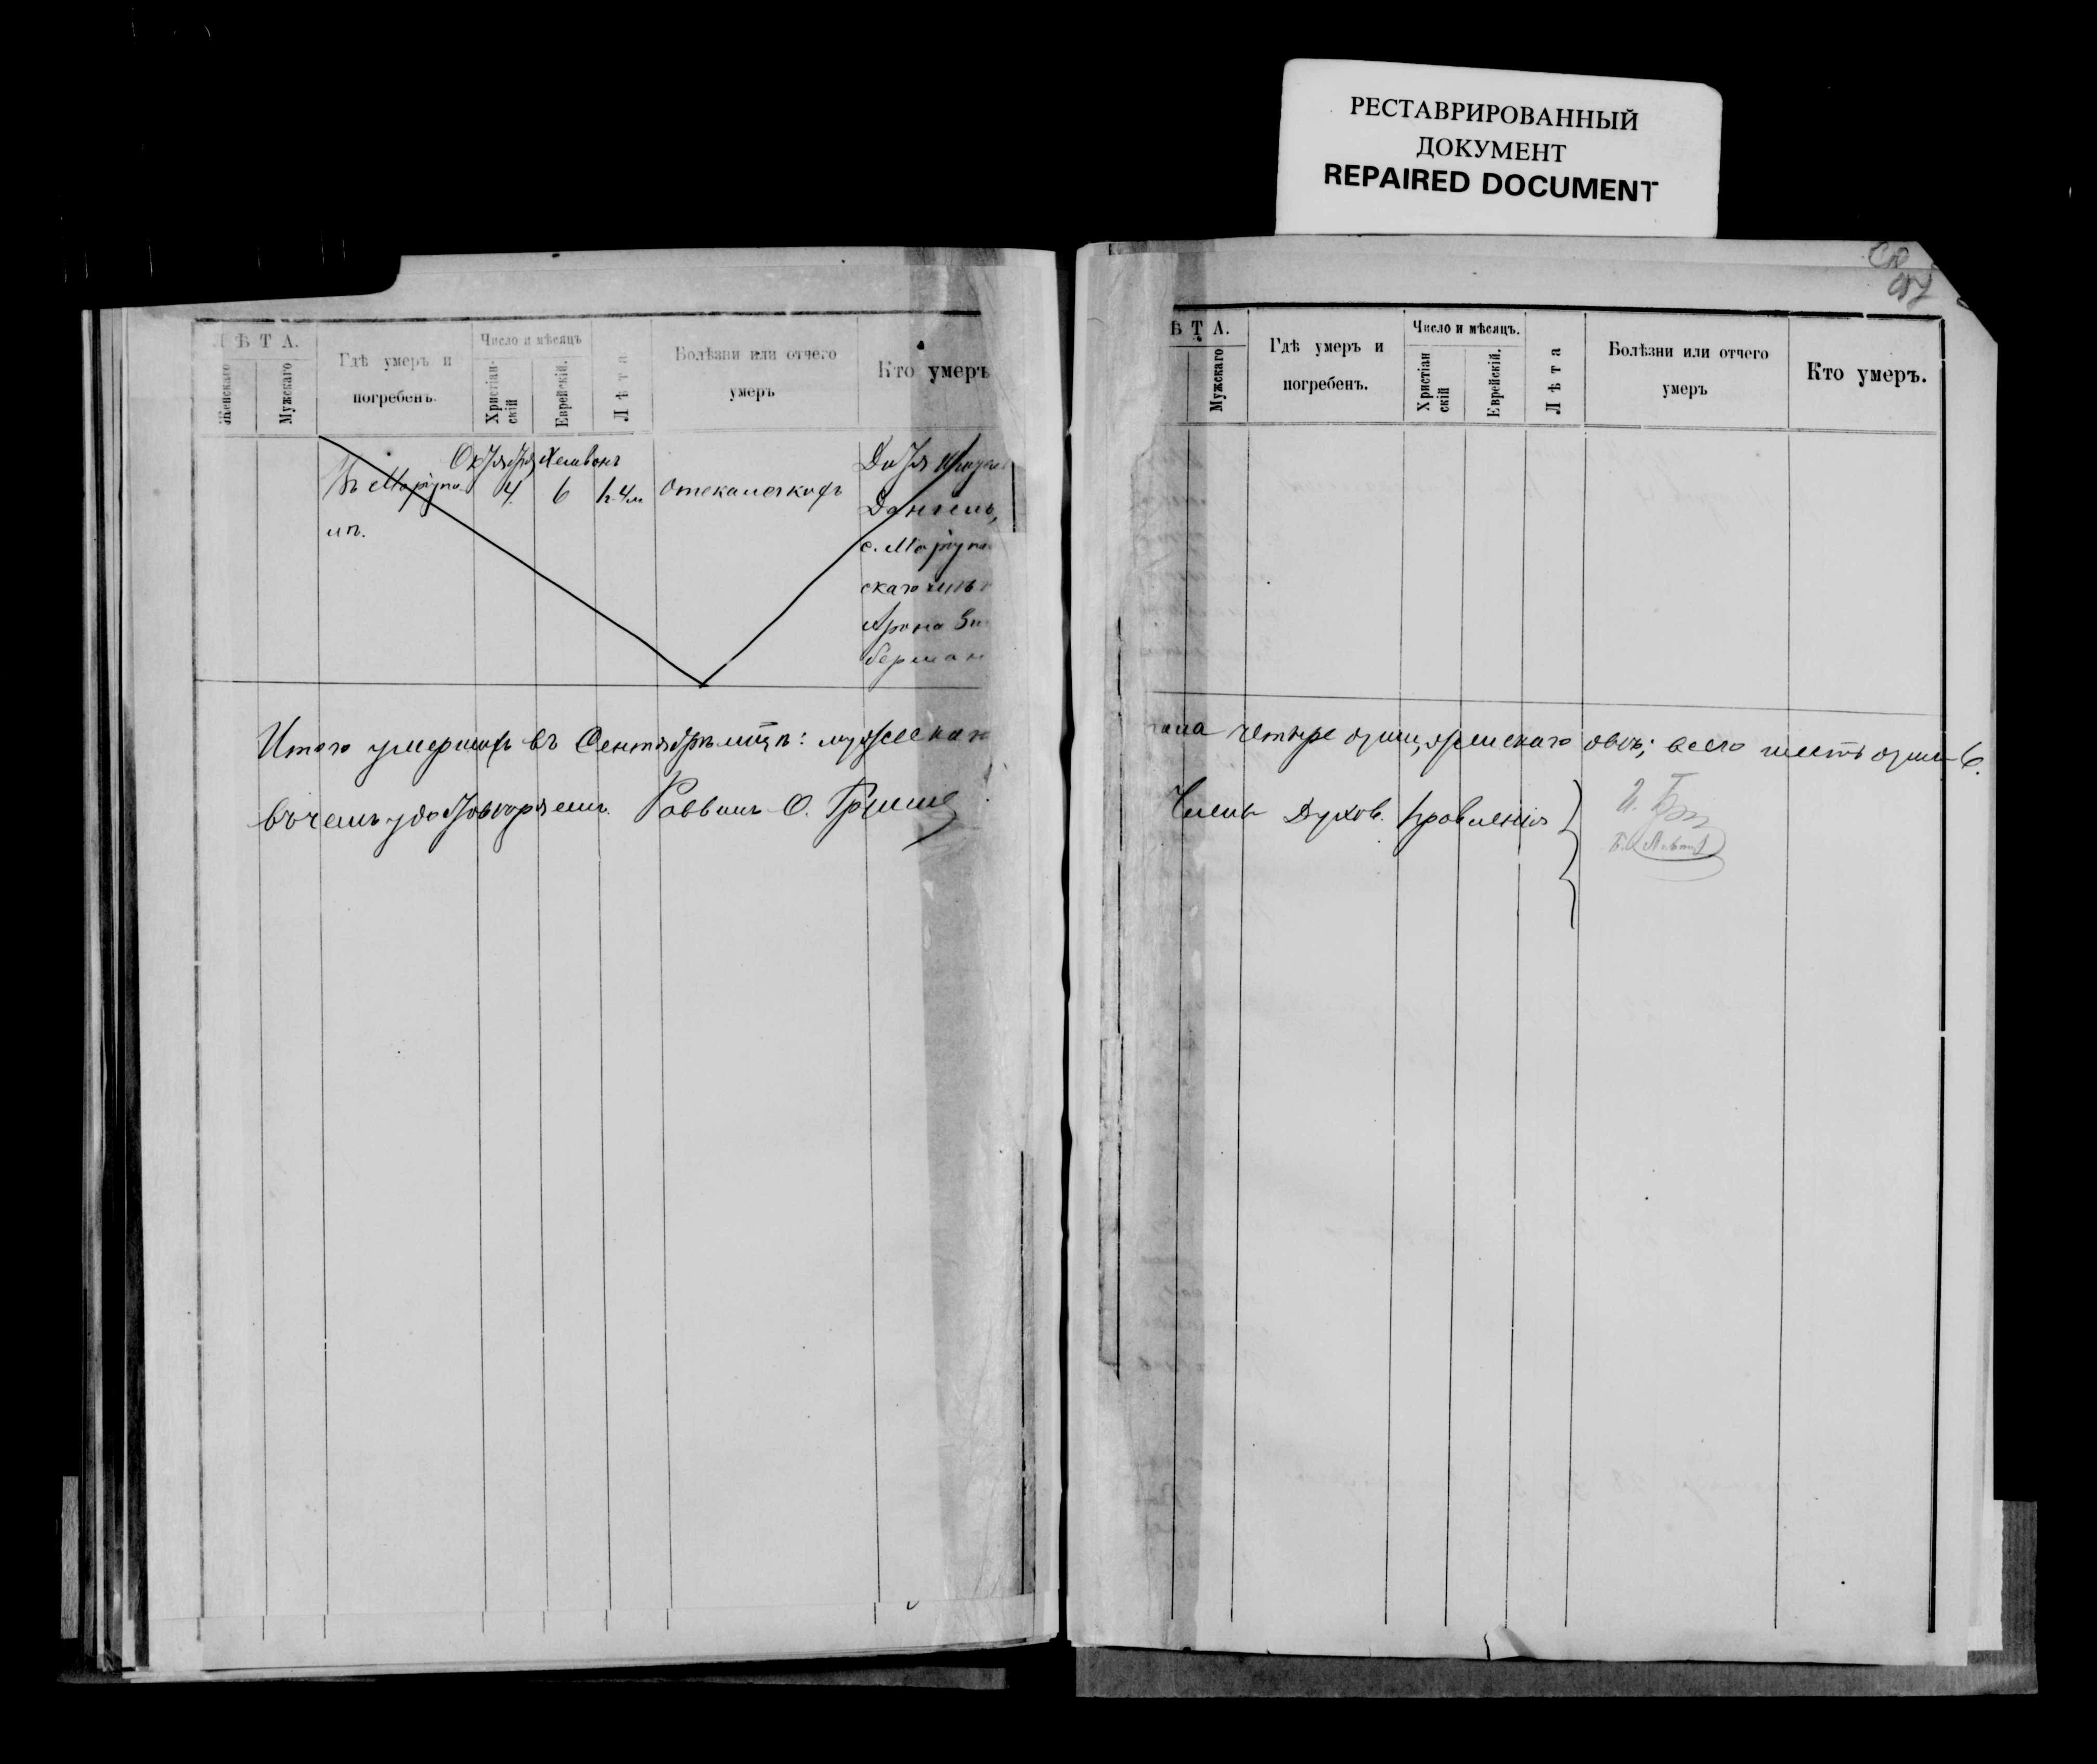 РЕСТАВРИРОВАННЫЙ
ДОКУМЕНТ
REPAIRED DOCUMENT
Л Ѣ Т А.
Женскаго
Мужскаго
Гдѣ умеръ и
погребенъ.
Число и мѣсяцъ
Христіан-
скій
Еврейскій.
Л ѣ т а
Болѣзни или отчего
умеръ
Кто умеръ
Октября Хешвонъ
Въ Маріупо- 4. 6 отекалечкахъ
лѣ.
Дитя
с. Маріупо
скаго
Арона Зи
берман
Итого умершихъ въ Сентябрѣ мцѣ: мужескаго
въ чемъ удостовѣряемъ. Раввинъ О.
Ѣ Т А.
Мужскаго
Гдѣ умеръ и
погребенъ.
Число и мѣсяцъ.
Христіан
скій
Еврейскій.
Л ѣ т а
Болѣзни или отчего
умеръ
Кто умеръ.
пола четыре души, женскаго двѣ; всего шесть душъ 6.
Члены Духов. правленія